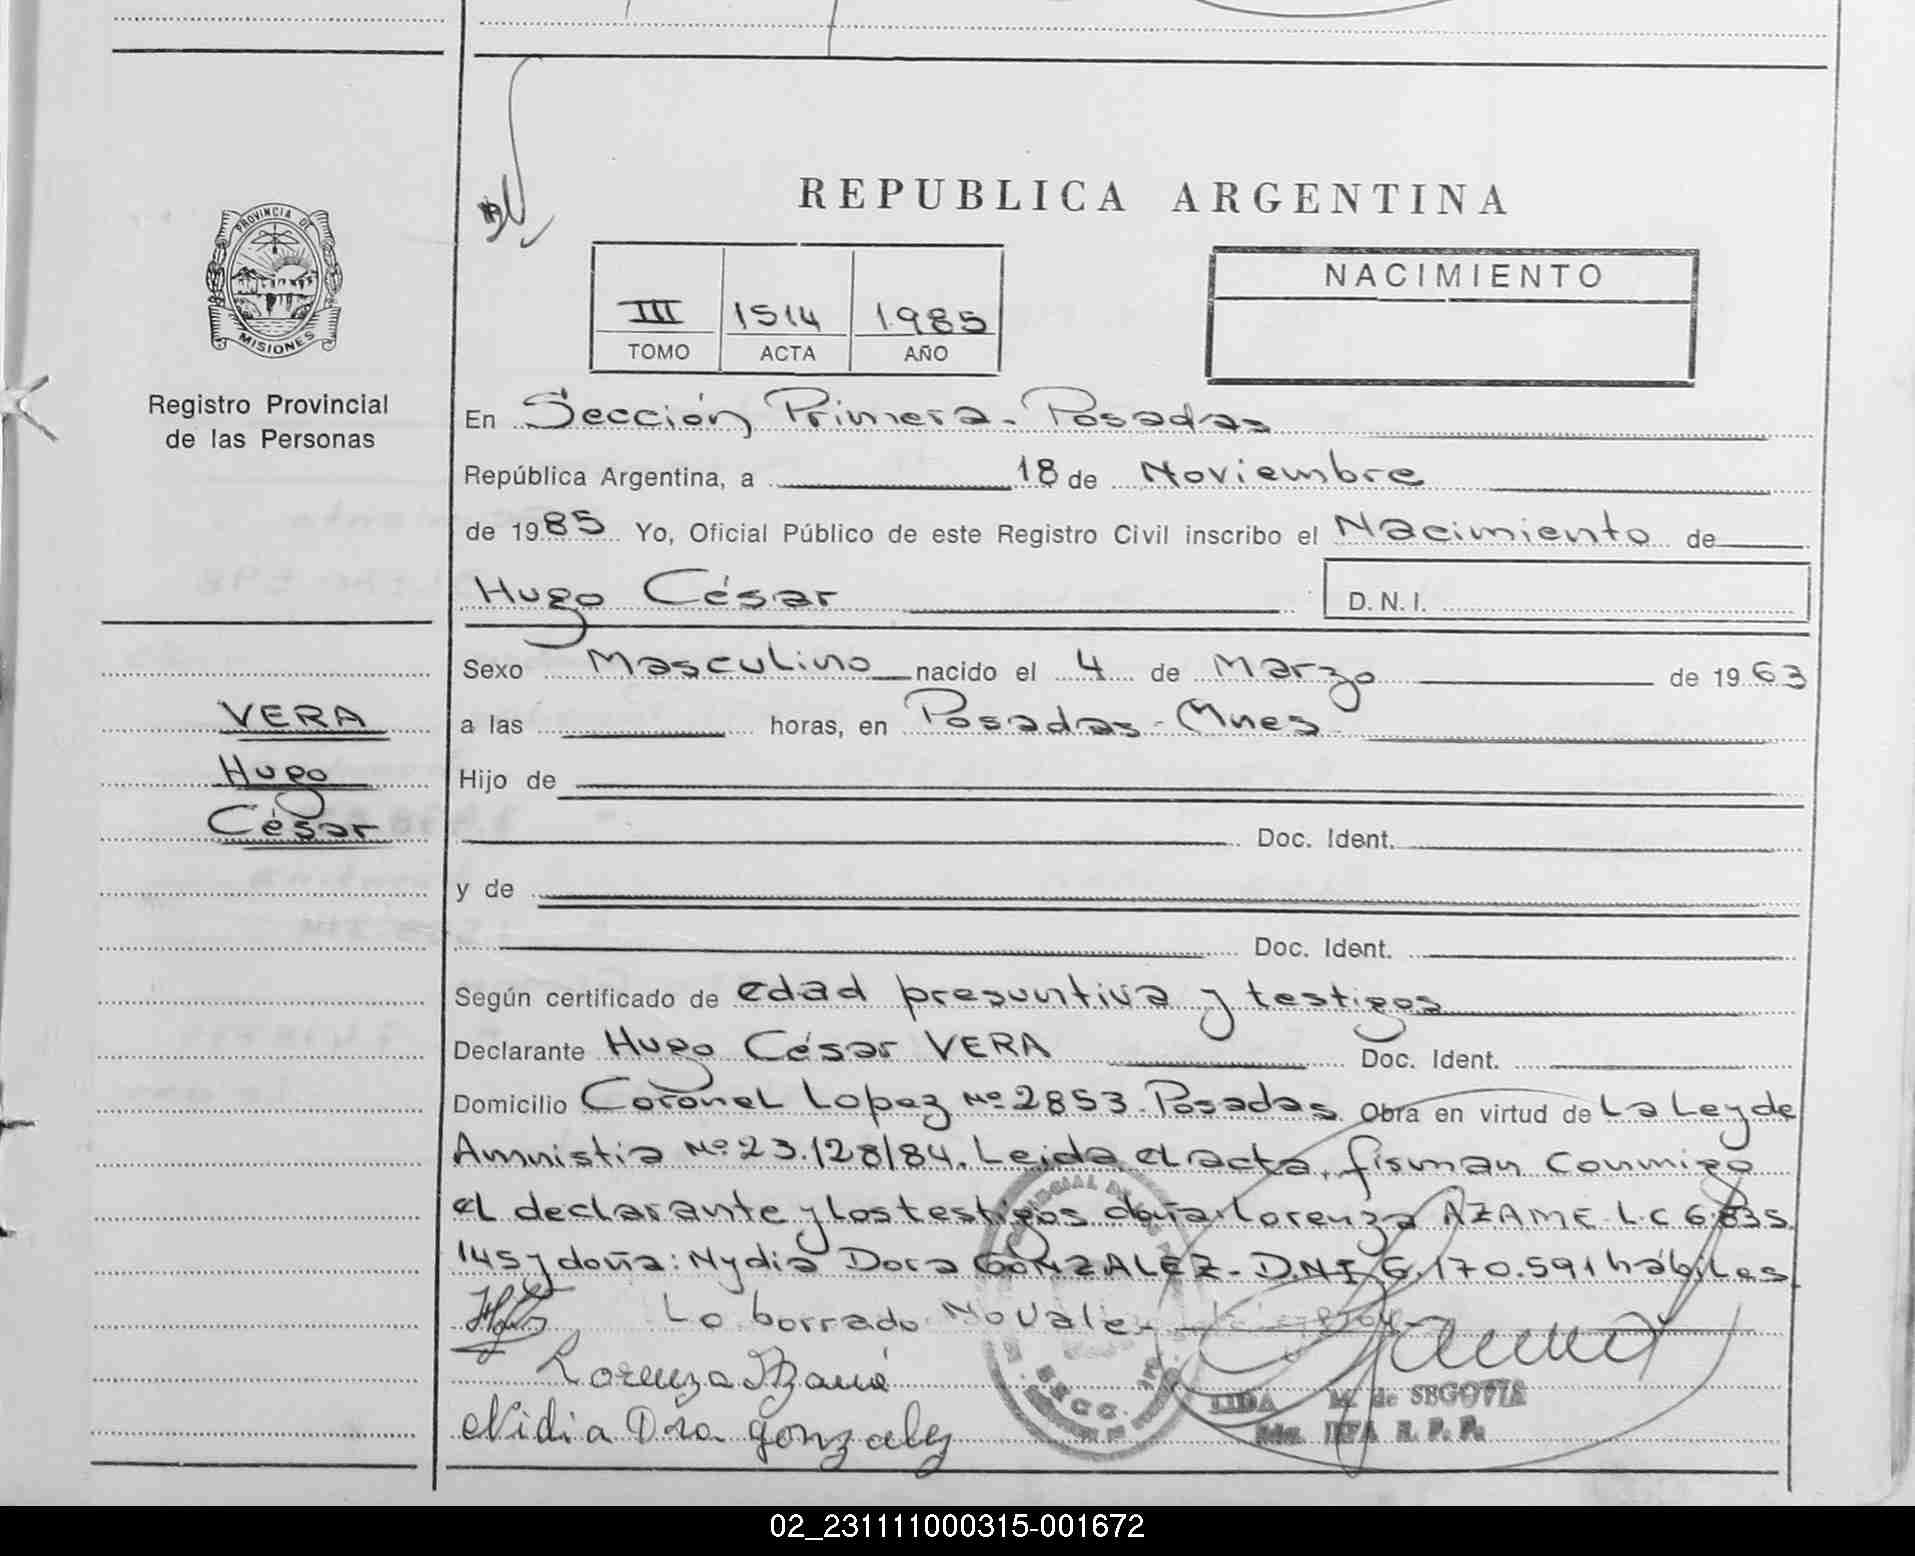 REPUBLICA ARGENTINA
PROVINCIA DE MISIONES
Registro Provincial
de las Personas
III 1514 1985
TOMO ACTA AÑO
NACIMIENTO
En Sección Primera - Posadas
República Argentina, a 18 de Noviembre
de 1985 Yo, Oficial Público de este Registro Civil inscribo el Nacimiento de
Hugo César D.N.I.
Sexo Masculino nacido el 4 de Marzo de 1963
VERA
Hugo
César
a las horas, en Posadas - Mnes
Hijo de
Doc. Ident.
y de
Doc. Ident.
Según certificado de edad presuntiva y testigos
Declarante Hugo César VERA Doc. Ident.
Domicilio Coronel Lopez Nº 2853. Posadas. Obra en virtud de La Ley de
Amnistia Nº 23.128/84. Leida el acta, firman conmigo
el declarante y los testigos doña: Lorenza AZAME L.C 6.835.
145 y doña: Nydia Dora GONZALEZ - D.N.I 6.170.591 hábiles
Lo borrado No Vale -
Lorenza Azamé
Nidia Dora gonzalez
LIDA M. de SEGOVIA
R. P. P.
02_231111000315-001672